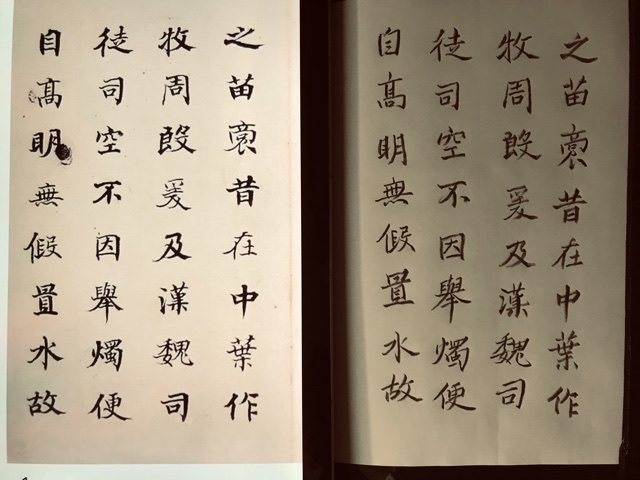 之苗裔昔在中葉作
牧周殷爰及漢魏司
徒司空不因舉燭便
自髙明無假置水故
之苗裔昔在中葉作
牧周殷爰及漢魏司
徒司空不因舉燭便
自髙明無假置水故